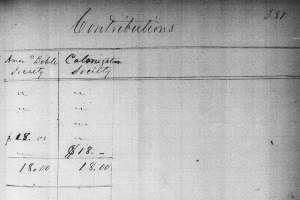 Contributions
381
Amer.n Bible Society
Colonization Society
" "
" "
" "
18.00 "
$18.–
18.00 18.00